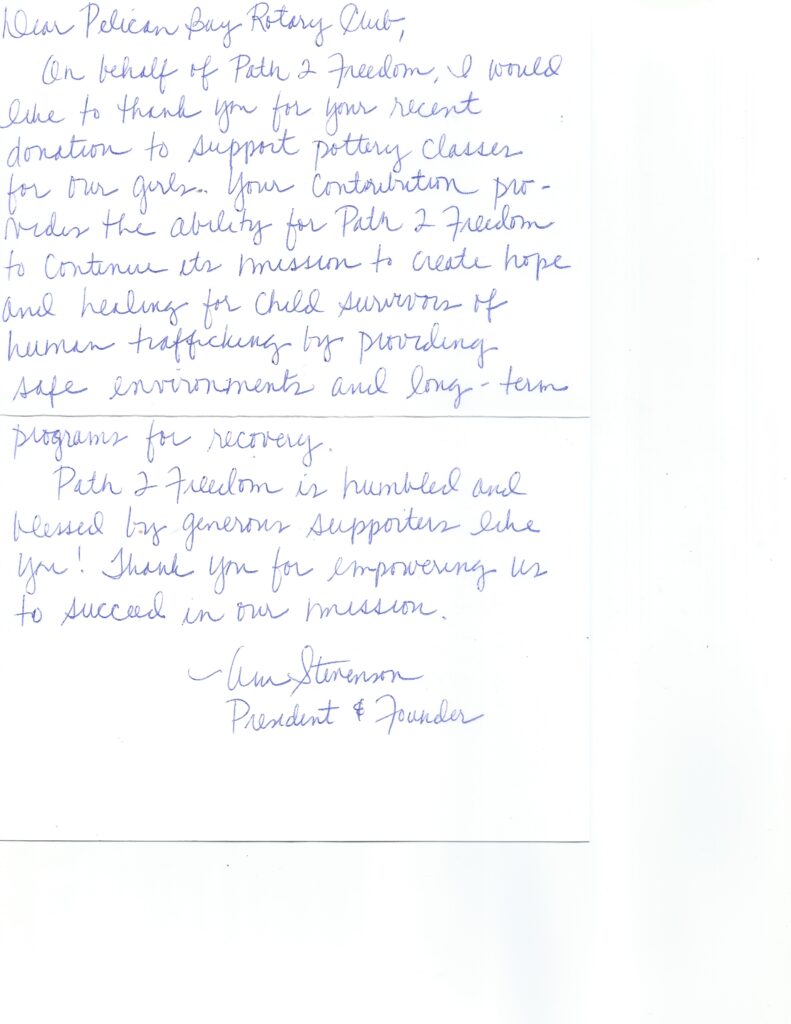 Dear Pelican Bay Rotary Club,
On behalf of Path 2 Freedom, I would
like to thank you for your recent
donation to support pottery classes
for our girls.. Your contribution pro-
vides the ability for Path 2 Freedom
to continue its mission to create hope
and healing for child survivors of
human trafficking by providing
safe environments and long-term
programs for recovery.
Path 2 Freedom is humbled and
blessed by generous supporters like
you! Thank you for empowering us
to succeed in our mission.
~ Stevenson
President & Founder